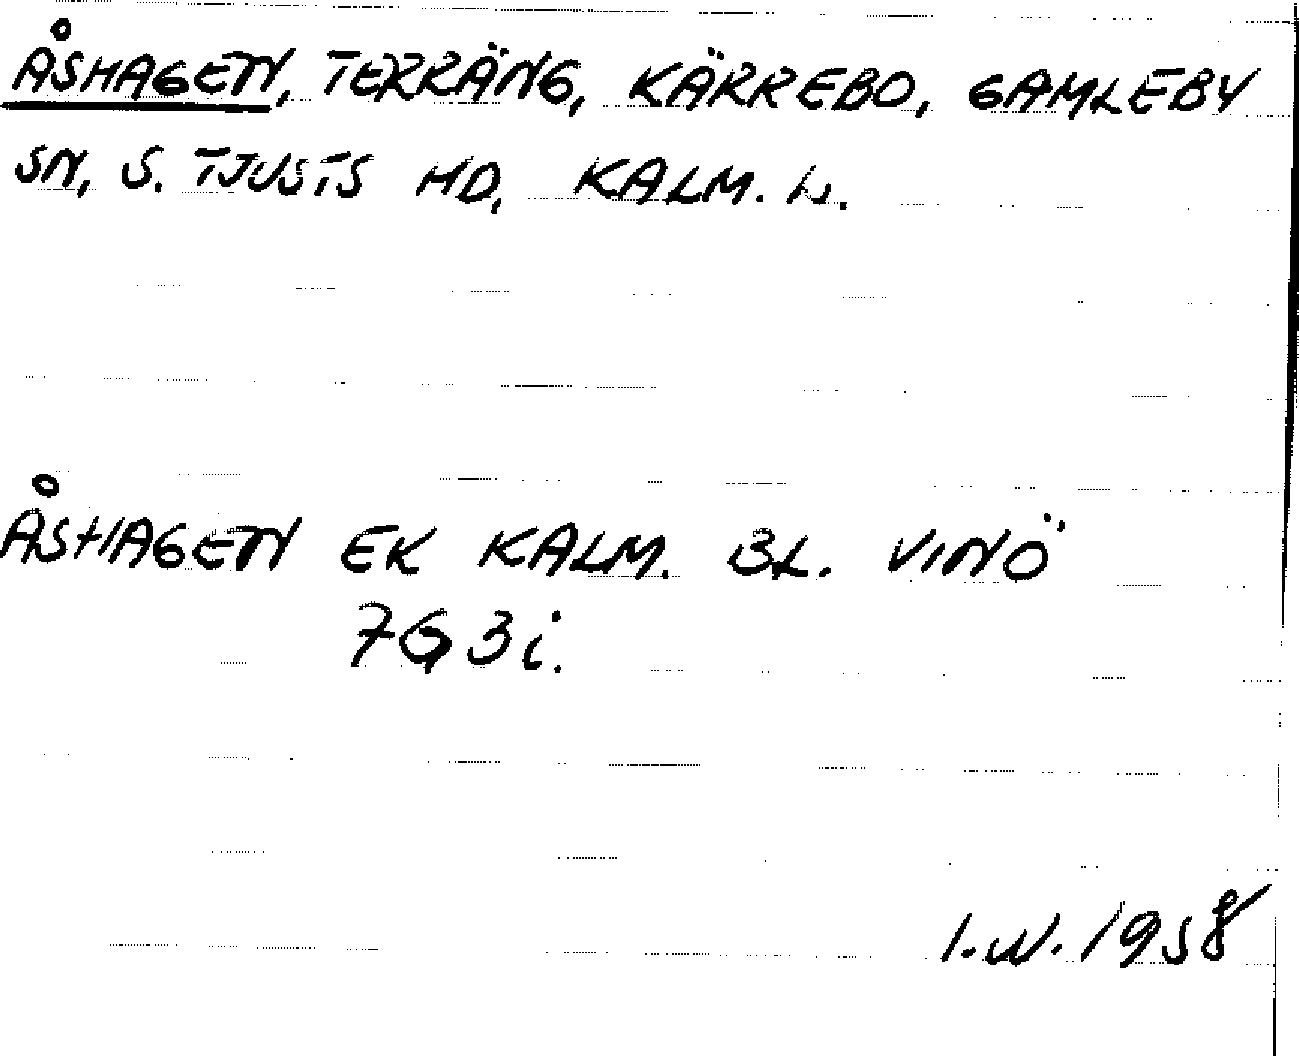 ÅSHAGEN, TERRÄNG, KÄRREBO, GAMLEBY
SN, S. TJUSTS HD, KALM. L.
ÅSHAGEN EK KALM. BL. VINÖ
7G 3i.
I.W. 1958